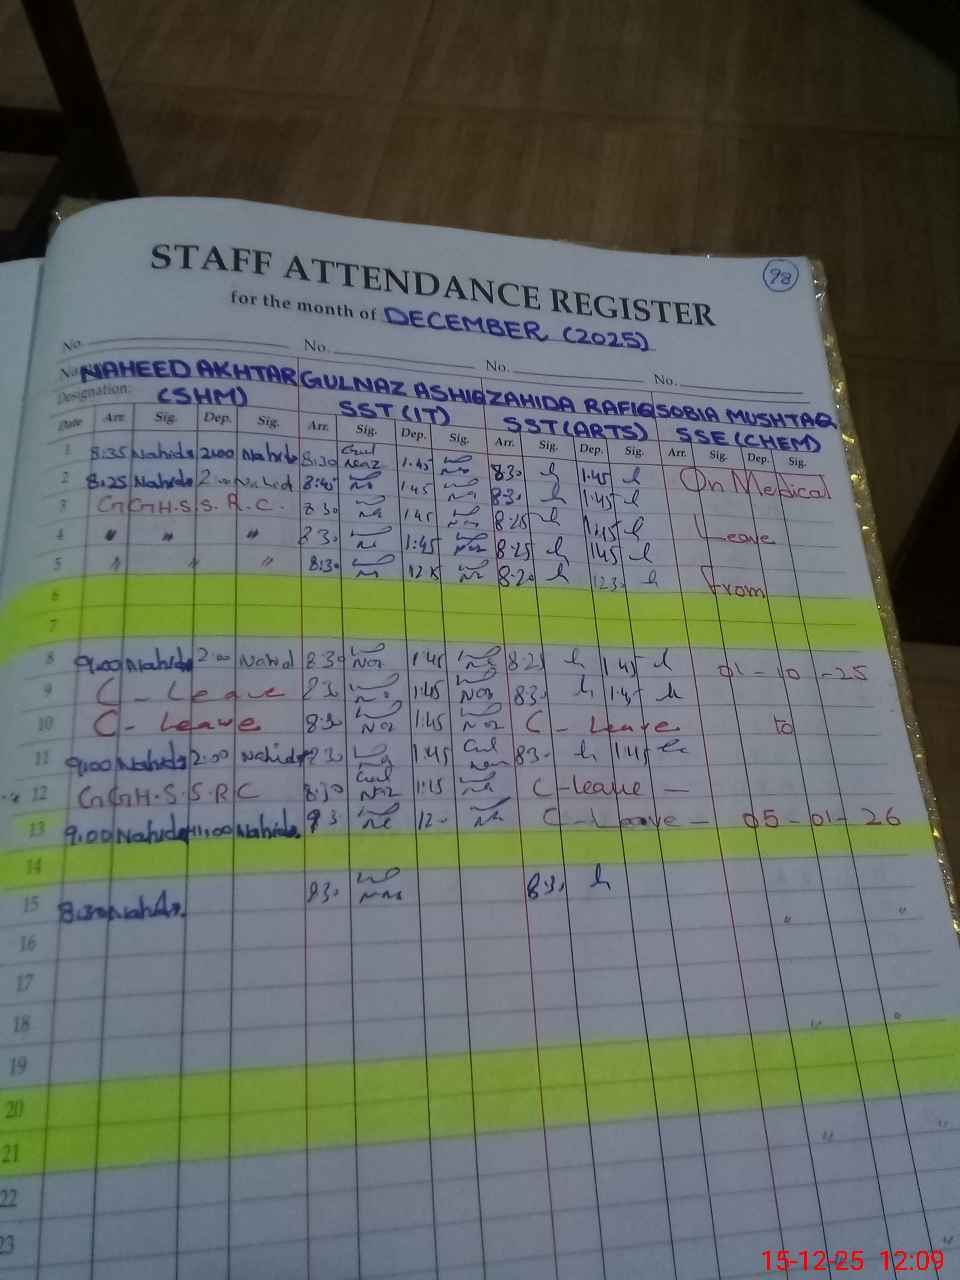 98
STAFF ATTENDANCE REGISTER
for the month of DECEMBER (2025)
No. No. No. No.
Name NAHEED AKHTAR GULNAZ ASHIQ ZAHIDA RAFIQ SOBIA MUSHTAQ
Designation: (SHM) SST (IT) SST (ARTS) SSE (CHEM)
Date Arr. Sig. Dep. Sig. Arr. Sig. Dep. Sig. Arr. Sig. Dep. Sig. Arr. Sig. Dep. Sig.
1 8:35 Nahida 2:00 Nahida 8:30 1:45 8:30 1:45 On Medical
2 8:25 Nahida 2:00 8:45 1:45 8:30 1:45
3 G GH.S.S.R.C. 8:30 1:45 8:25 1:15 Leave
4 " " " 8:30 1:45 8:25 1:45
5 " " " 8:30 8:20 12:30 From
6
7
8 9:00 Nahida 2:00 8:30 1:45 8:25 1:45 01 - 10 - 25
9 C - Leave 8:30 1:45 8:30 1:45
10 C - Leave 8:30 1:45 C - Leave to
11 9:00 Nahida 2:00 Nahida 8:30 1:45 8:30 1:45
12 G GH.S.S.R.C 8:30 1:15 C - leave -
13 9:00 Nahida 11:00 Nahida. 12 - C - Leave - 05 - 01 - 26
14
15 8:30 Nahida. 8:30 8:30 " "
16
17
18 " "
19
20
21 " "
22
23 "
15-12-25 12:09